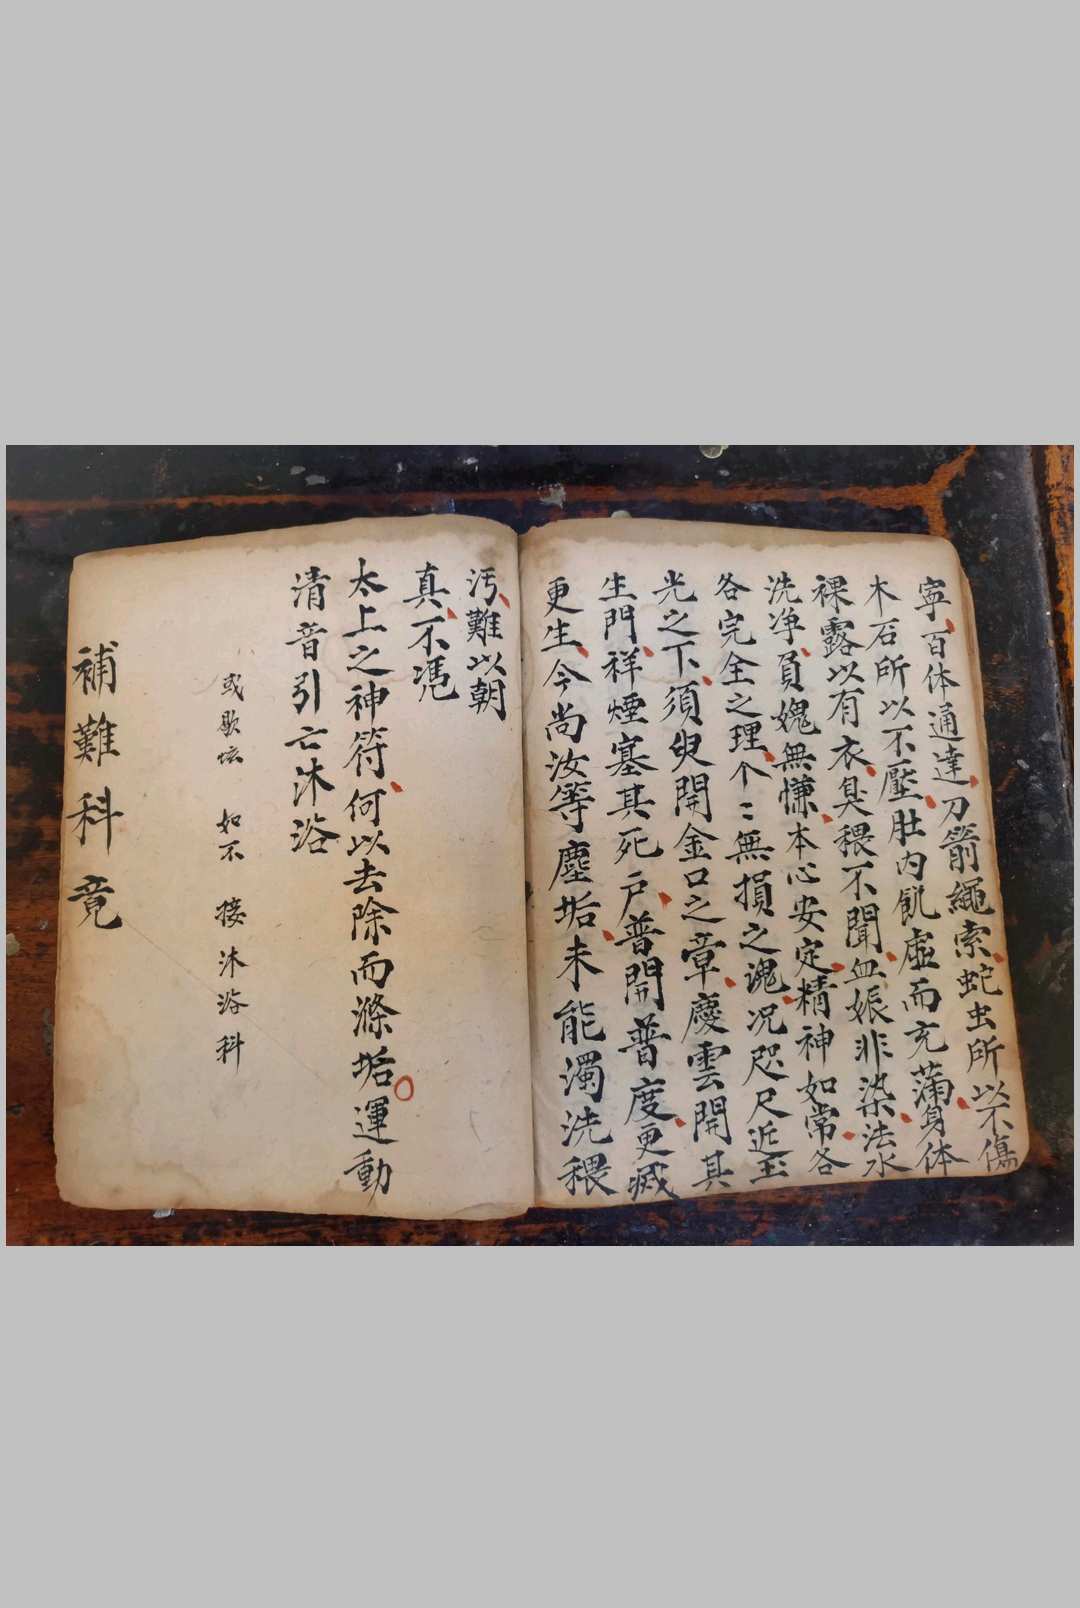 寧百体通達刀箭繩索蛇虫所以不傷
木石所以不壓肚内飢虛而充蒲身体
裸露以有衣臭穢不聞血娠非染法水
洗净員媿無慊本心安定精神如常各
各完全之理个〻無損之魂况咫尺近玉
光之下須臾開金口之章慶雲開其
生門祥煙塞其死户普開普度更滅
更生今尚汝等塵垢未能濁洗穢
汚難以朝
真不憑
太上之神符何以去除而滌垢運動
清音引亡沐浴
或歇坛 如不 接沐浴科
補難科竟